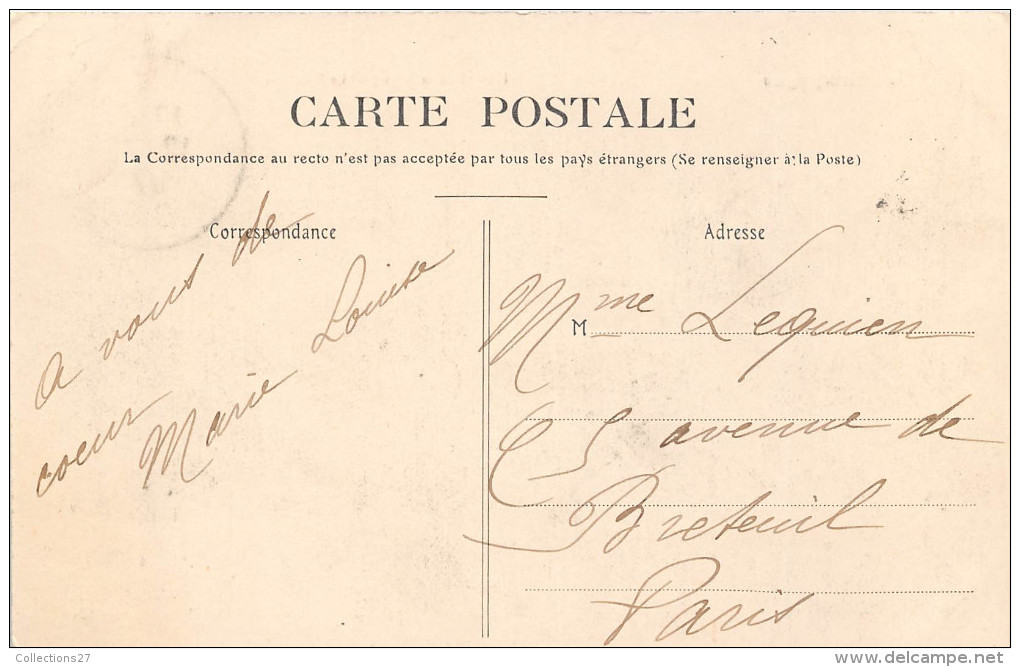 CARTE POSTALE
La Correspondance au recto n'est pas acceptée par tous les pays étrangers (Se renseigner à la Poste)
Correspondance
A vous de
coeur
Marie Louise
Adresse
M
Mme Lequien
avenue de
Breteuil
Paris
Collections27
www.delcampe.net